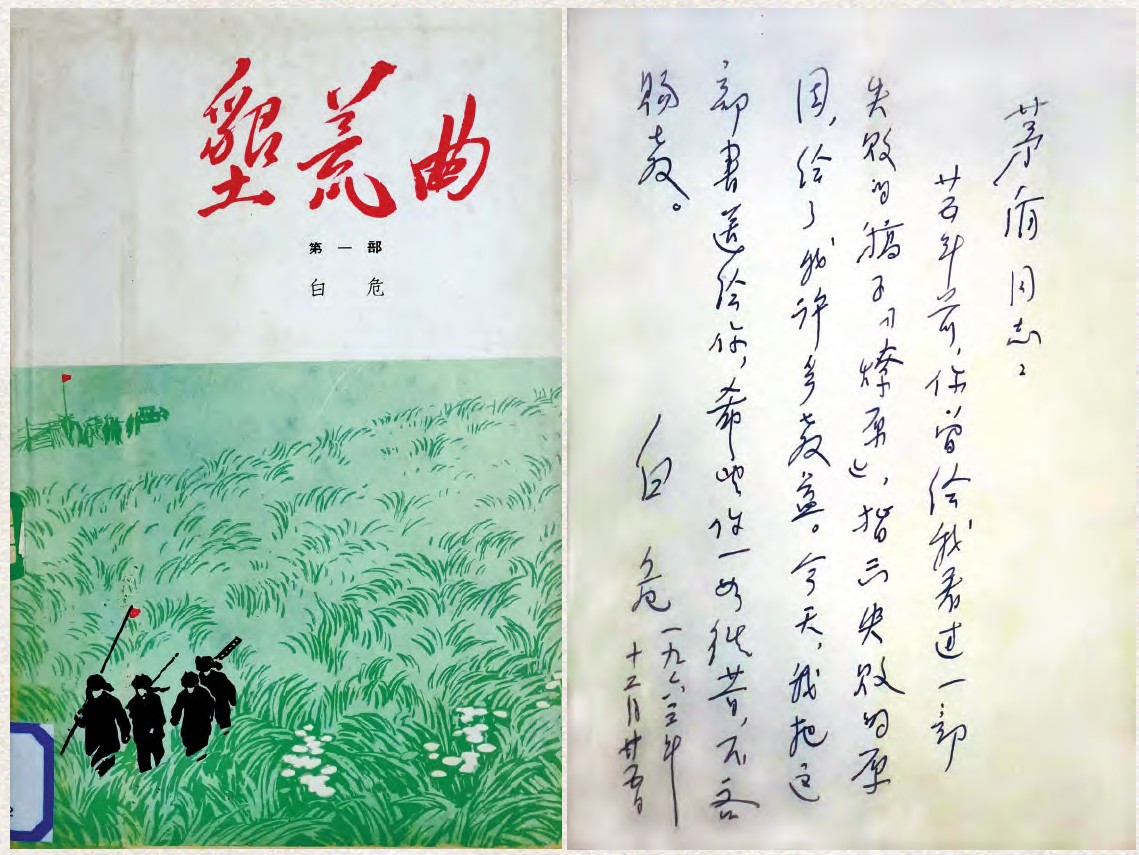 墾荒曲
第一部
白危
茅盾同志：
廿五年前，你曾给我看过一部
失败的稿子『燎原』，指出失败的原
因，给了我许多教益。今天，我把这
部书送给你，希望你一如往昔，不吝
赐教。
白危
一九六三年
十二月廿五日